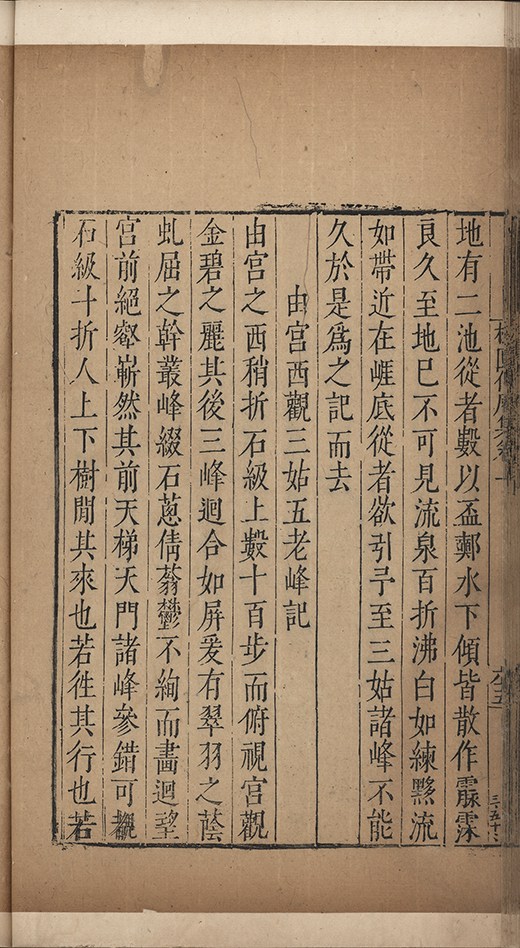 地有二池從者數以盃𣂏水下傾皆散作霡霂
良久至地已不可見流泉百折沸白如練黟流
如帶近在崕底從者欲引予至三姑諸峰不能
久於是爲之記而去
由宮西觀三姑五老峰記
由宮之西稍折石級上數十百步而俯視宮觀
金碧之麗其後三峰迴合如屏爰有翠羽之蔭
虬屈之幹叢峰綴石蔥倩蓊鬱不絢而畵迴望
宮前絕壑嶄然其前天梯天門諸峰參錯可覩
石級十折人上下樹閒其來也若徃其行也若